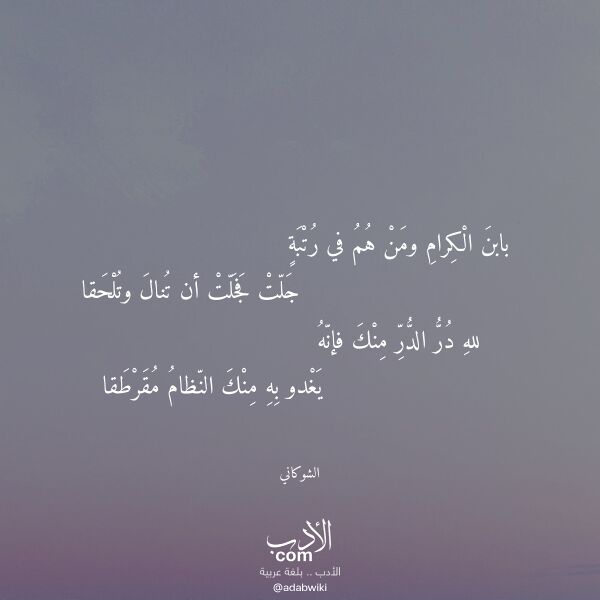 بابنَ الْكِرامِ ومَنْ هُمُ في رُتْبَةٍ
جَلّتْ فَجَلّتْ أن تُنالَ وتُلْحَقا
للهِ دُرُّ الدُّرِّ مِنْكَ فإنّهُ
يَغْدو بِهِ مِنْكَ النّظامُ مُقَرْطَقا
الشوكاني
الأدب
com
الأدب .. بلغة عربية
@adabwiki